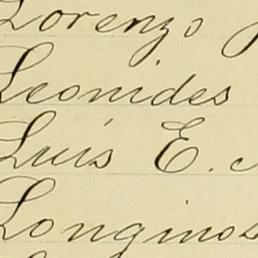 Lorenzo
Leonides
Luis E.
Longinos